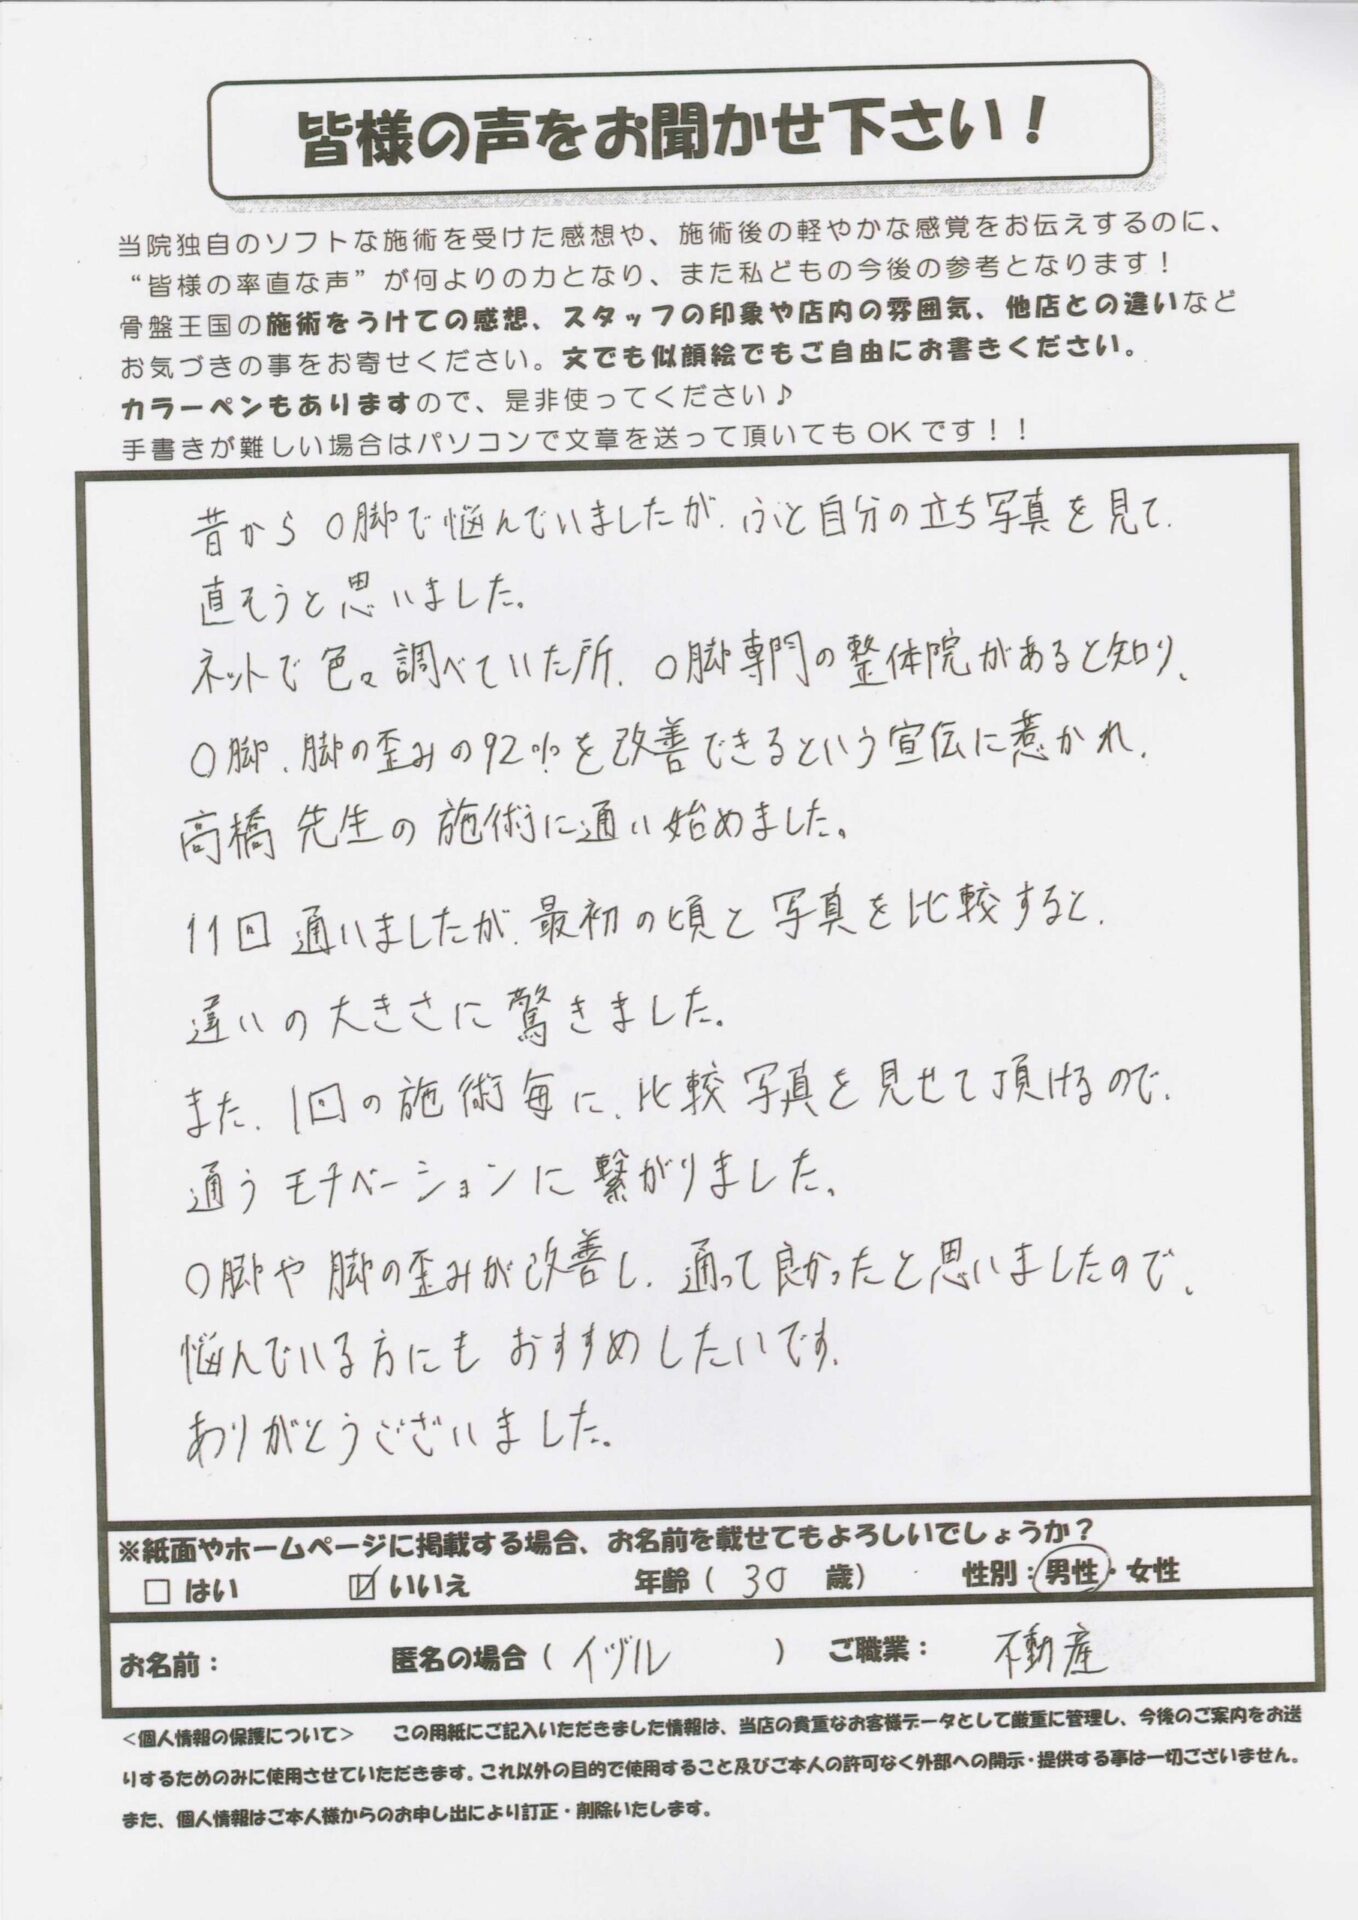 皆様の声をお聞かせ下さい！
当院独自のソフトな施術を受けた感想や、施術後の軽やかな感覚をお伝えするのに、
“皆様の率直な声”が何よりの力となり、また私どもの今後の参考となります！
骨盤王国の施術をうけての感想、スタッフの印象や店内の雰囲気、他店との違いなど
お気づきの事をお寄せください。文でも似顔絵でもご自由にお書きください。
カラーペンもありますので、是非使ってください♪
手書きが難しい場合はパソコンで文章を送って頂いてもOKです！！
昔からO脚で悩んでいましたが、ふと自分の立ち写真を見て、
直そうと思いました。
ネットで色々調べていた所、O脚専門の整体院があると知り、
O脚、脚の歪みの92%を改善できるという宣伝に惹かれ、
高橋先生の施術に通い始めました。
11回通いましたが、最初の頃と写真を比較すると、
違いの大きさに驚きました。
また、1回の施術毎に、比較写真を見せて頂けるので、
通うモチベーションに繋がりました。
O脚や脚の歪みが改善し、通って良かったと思いましたので、
悩んでいる方にもおすすめしたいです。
ありがとうございました。
※紙面やホームページに掲載する場合、お名前を載せてもよろしいでしょうか？
□ はい ☑ いいえ 年齢（ 30 歳） 性別：男性・女性
お名前： 匿名の場合（ イヅル ） ご職業： 不動産
＜個人情報の保護について＞ この用紙にご記入いただきました情報は、当店の貴重なお客様データとして厳重に管理し、今後のご案内をお送
りするためのみに使用させていただきます。これ以外の目的で使用すること及びご本人の許可なく外部への開示・提供する事は一切ございません。
また、個人情報はご本人様からのお申し出により訂正・削除いたします。